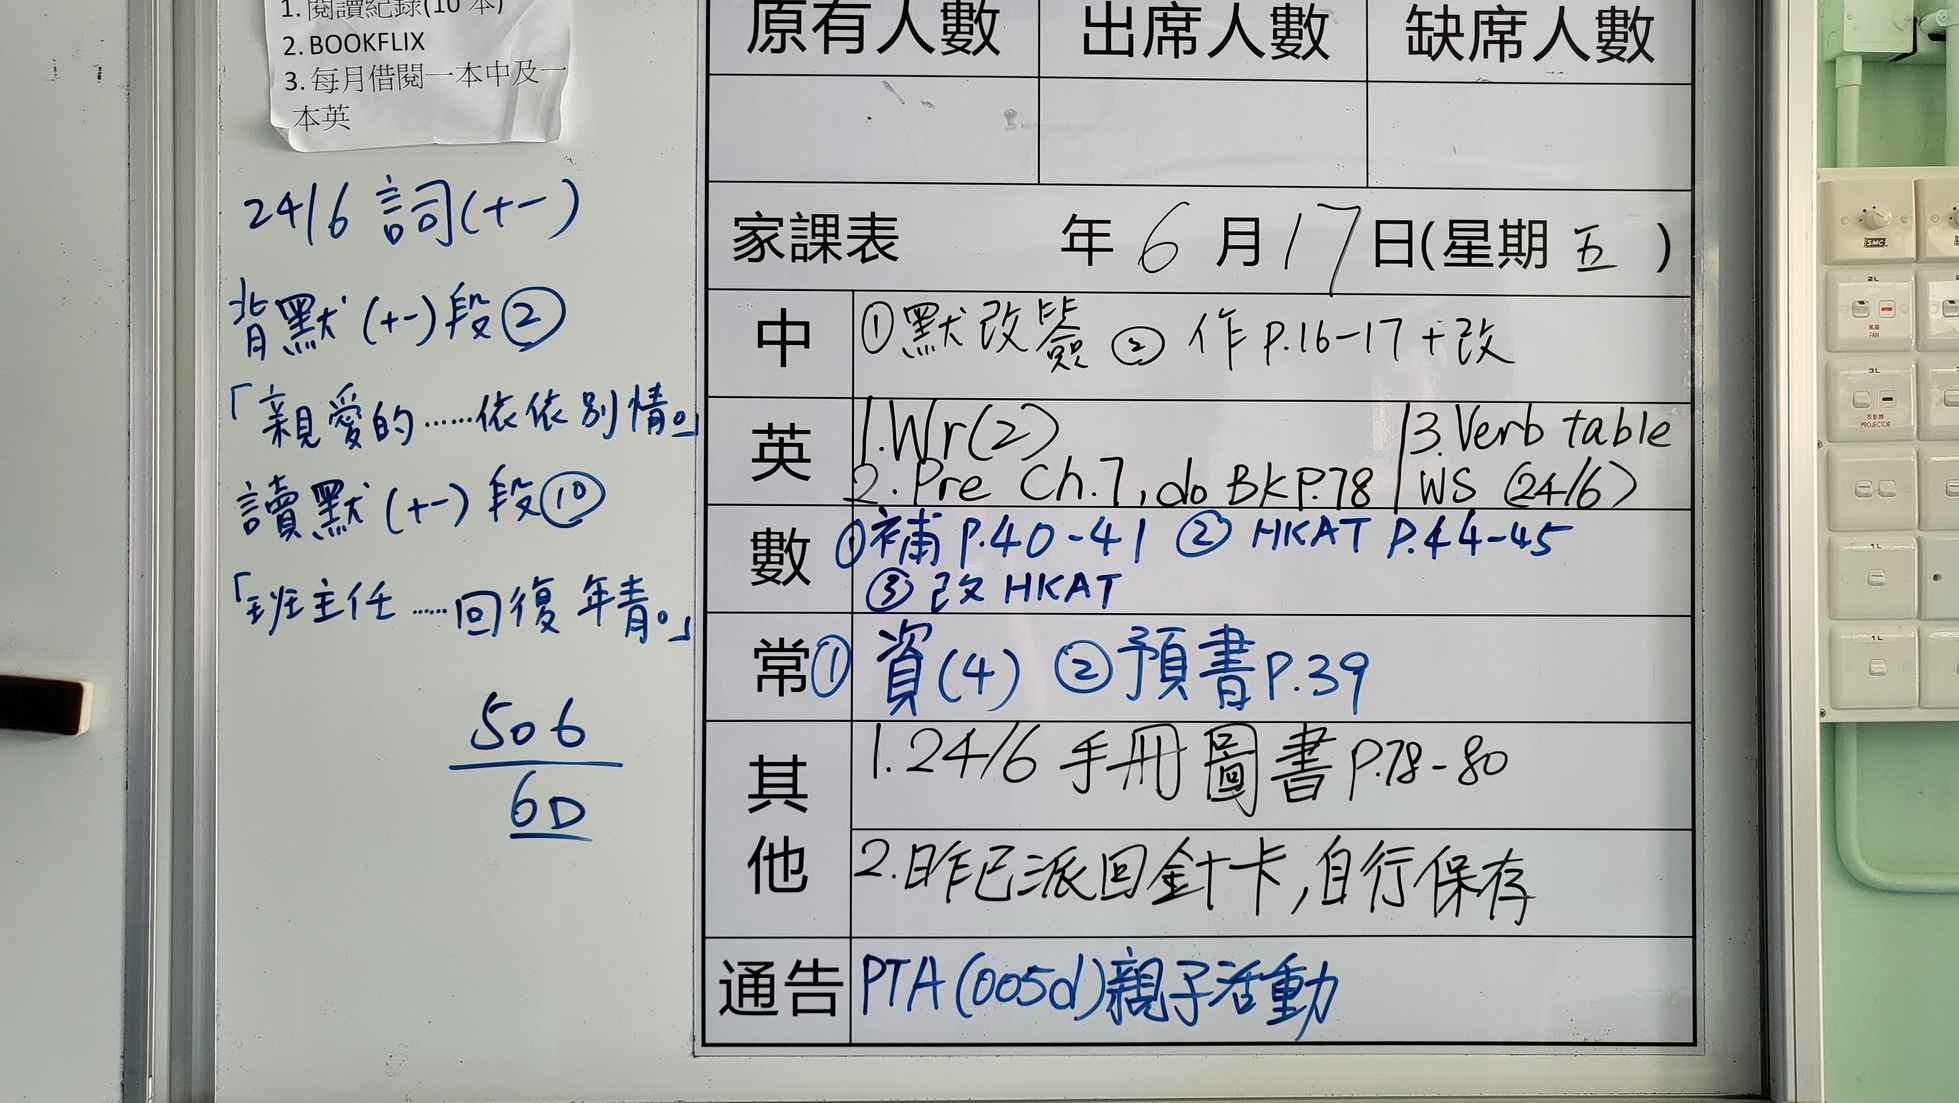 1. 閱讀紀錄(10 本)
2. BOOKFLIX
3. 每月借閱一本中及一
本英
24/6 詞(十一)
背默(十一)段②
「親愛的……依依別情。」
讀默(十一)段⑩
「班主任……回復年青。」
506
6D
原有人數 出席人數 缺席人數
家課表 年 6 月 17 日(星期 五 )
中 ①默改簽 ② 作 P.16-17 + 改
英 1.Wr(2)
2. Pre Ch.7, do BK P.78
3. Verb table
WS (24/6)
數 ①補 P.40-41 ② HKAT P.44-45
③ 改 HKAT
常 ① 資(4) ②預書P.39
其他 1. 24/6 手冊圖書 P.78-80
2. 昨已派回針卡,自行保存
通告 PTA(005d)親子活動
SMC
2L
風扇
FAN
3L
投影機
PROJECTOR
1L
1L